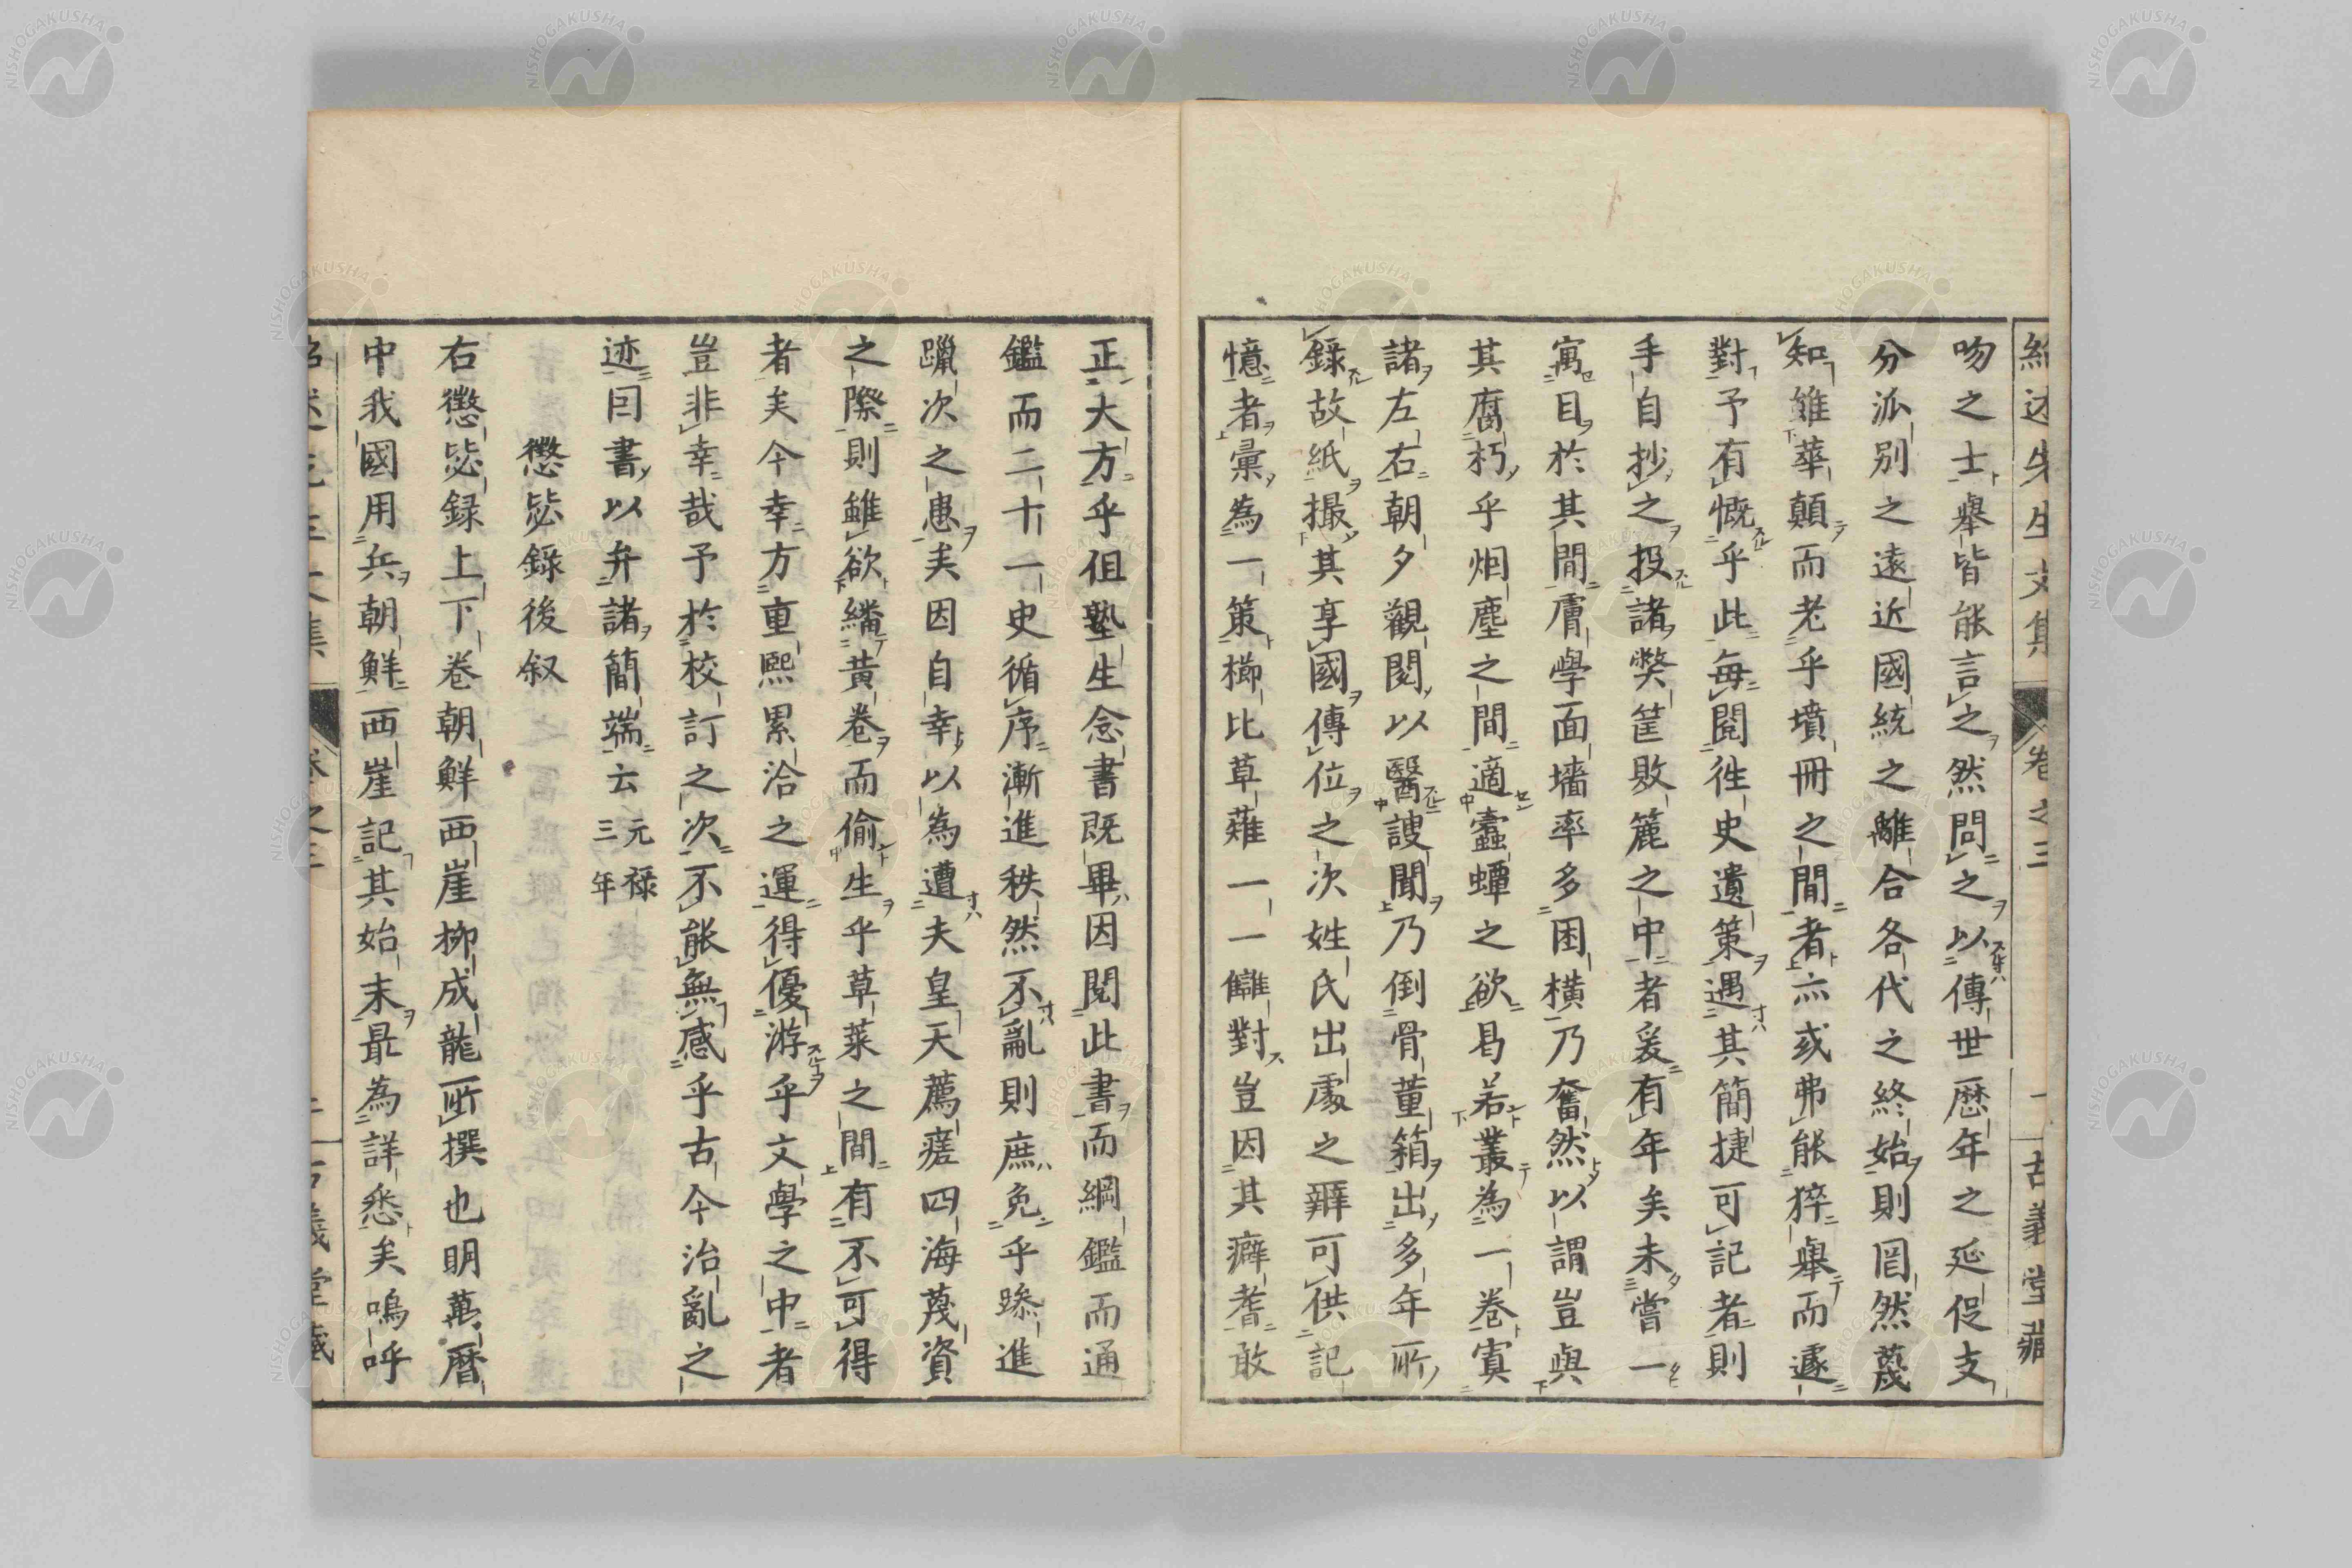 紹述先生文集 卷之三 一 古義堂藏
吻之士舉皆能言之然問之以傳世歷年之延促支
分派別之遠近國統之離合各代之終始則罔然蔑
知雖華顛而老乎墳冊之間者亦或弗能猝舉而遽
對予有慨乎此每閱徃史遺策遇其簡捷可記者則
手自抄之投諸獘筐敗簏之中者爰有年矣未嘗一
寓目於其間膚學面墻率多困橫乃奮然以謂豈與
其腐朽乎烟塵之間適蠹蟫之欲曷若叢為一卷寘
諸左右朝夕觀閱以醫謏聞乃倒骨董箱出多年所
錄故紙撮其享國傳位之次姓氏出處之辨可供記
憶者彙為一策櫛比草薙一一讎對豈因其癖耆敢
正大方乎但塾生念書既畢因閱此書而綱鑑而通
鑑而二十一史循序漸進秩然不亂則庶免乎躐進
躐次之患矣因自幸以為遭夫皇天薦瘥四海蔑資
之際則雖欲繙黃卷而偷生乎草萊之間有不可得
者矣今幸方重熙累洽之運得優游乎文學之中者
豈非幸哉予於校訂之次不能無感乎古今治亂之
迹因書以弁諸簡端云 元祿三年
懲毖錄後叙
右懲毖録上下卷朝鮮西崖柳成龍所撰也明萬曆
中我國用兵朝鮮西崖記其始末最為詳悉矣嗚呼